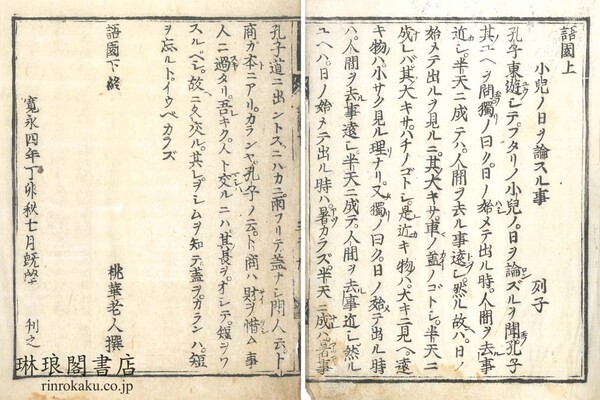 語園上
小兒ノ日ヲ論スル事 列子
孔子東遊シテフタリノ小兒ノ日ヲ論ズルヲ聞孔子
其ユヘヲ問獨ノ曰ク日ノ始メテ出ル時人間ヲ去事
近シ半天ニ成テハ人間ヲ去ル事遠シ然ル故ハ日ノ
始メテ出ルヲ見ルニ其大キサ車ノ蓋ノゴトシ半天ニ
成レバ其大キサハチノゴトシ是近キ物ハ大キニ見ヘ遠
キ物ハ小サク見ル理ナリ又獨ノ曰ク日ノ始テ出ル時
ハ人間ヲ去事遠シ半天ニ成テ人間ヲ去事近シ然ル
ユヘハ日ノ始メテ出ル時ハ暑カラズ半天ニ成ハ暑事
孔子道ニ出ントスニハカニ雨フリテ蓋ナシ門人云ト
商ガ本ニアリカランヤ孔子ノ云ト商ハ財ヲ惜ム事
人ニ過タリ吾キク人ト交ルニハ其長ヲオシテ短ヲワ
スルベシ故ニ久ク交ル其レヲシムヲ知テ蓋ヲカランハ短
ヲ忘ルトイウベカラズ
語園下終
桃華老人撰
寛永四年丁卯秋七月既望 刊之
琳琅閣書店
rinrokaku.co.jp